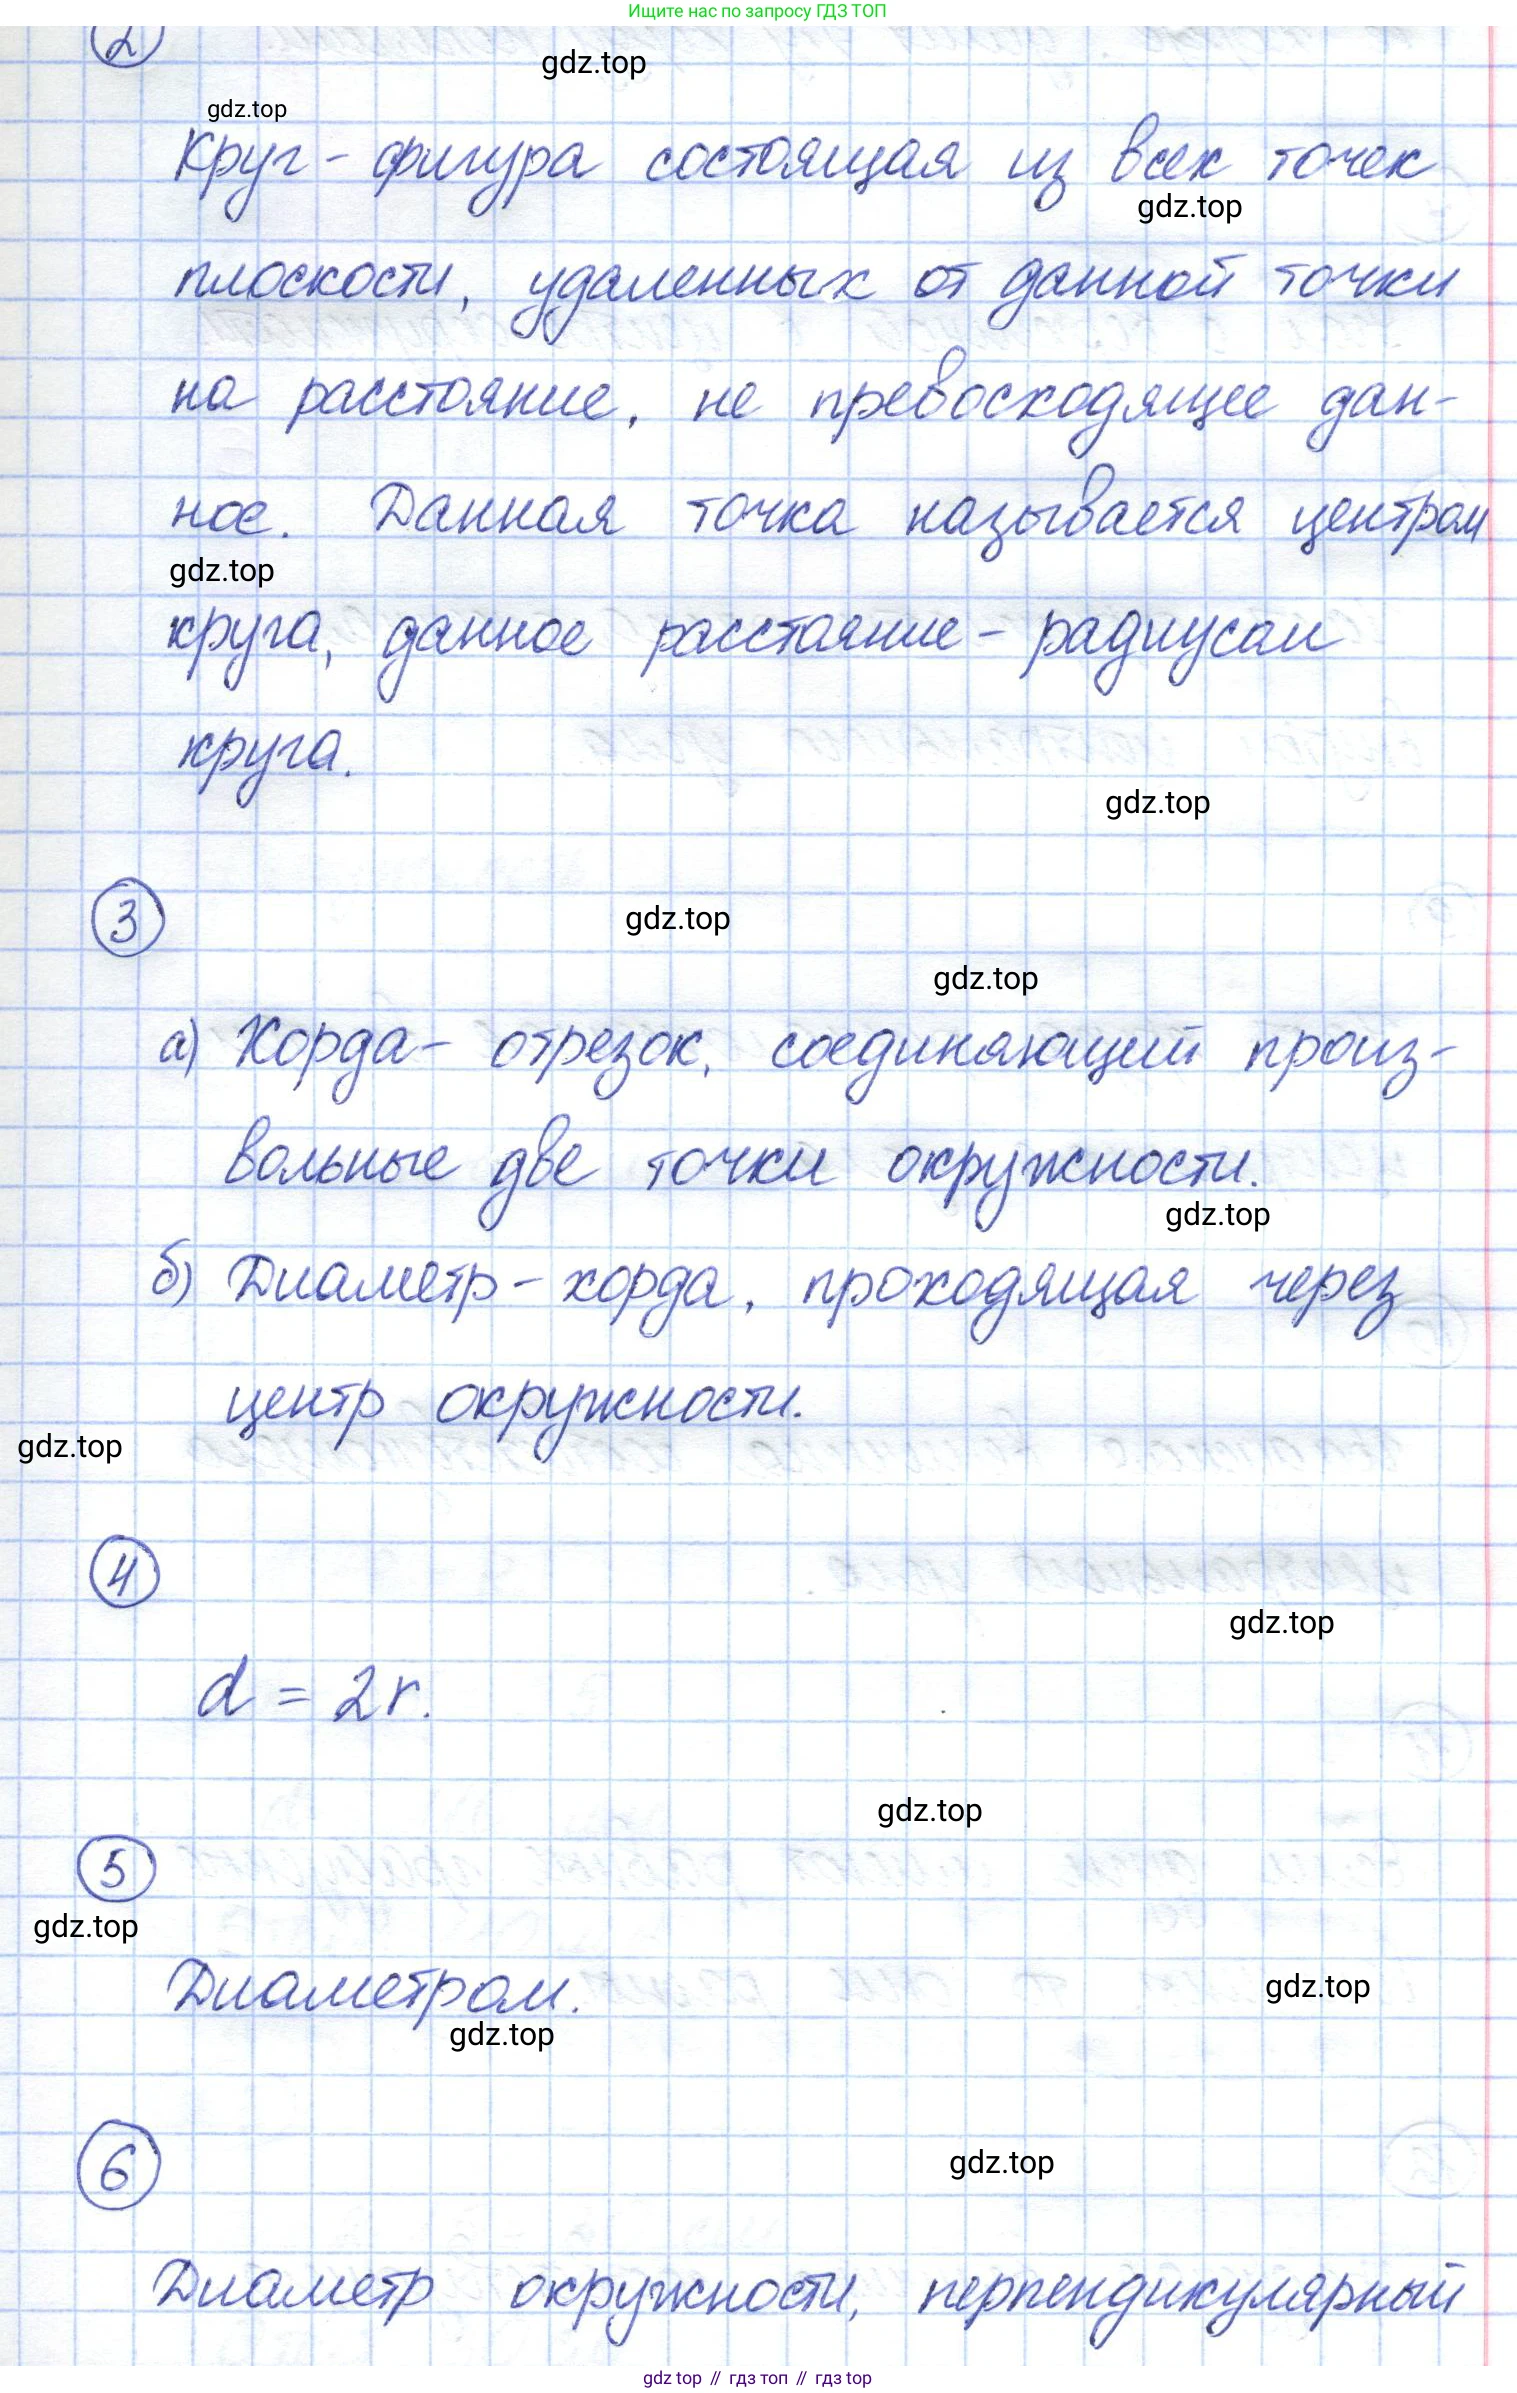 Ищите нас по запросу ГДЗ ТОП
2
gdz.top
gdz.top
Круг - фигура состоящая из всех точек
gdz.top
плоскости, удаленных от данной точки
на расстояние, не превосходящее дан-
ное. Данная точка называется центром
gdz.top
круга, данное расстояние - радиусом
круга.
gdz.top
3
gdz.top
gdz.top
а) Хорда - отрезок, соединяющий произ-
вольные две точки окружности.
gdz.top
б) Диаметр - хорда, проходящая через
центр окружности.
gdz.top
4
gdz.top
d = 2r.
gdz.top
5
gdz.top
Диаметром.
gdz.top
gdz.top
6
gdz.top
Диаметр окружности, перпендикулярный
gdz top // гдз топ // гдз top